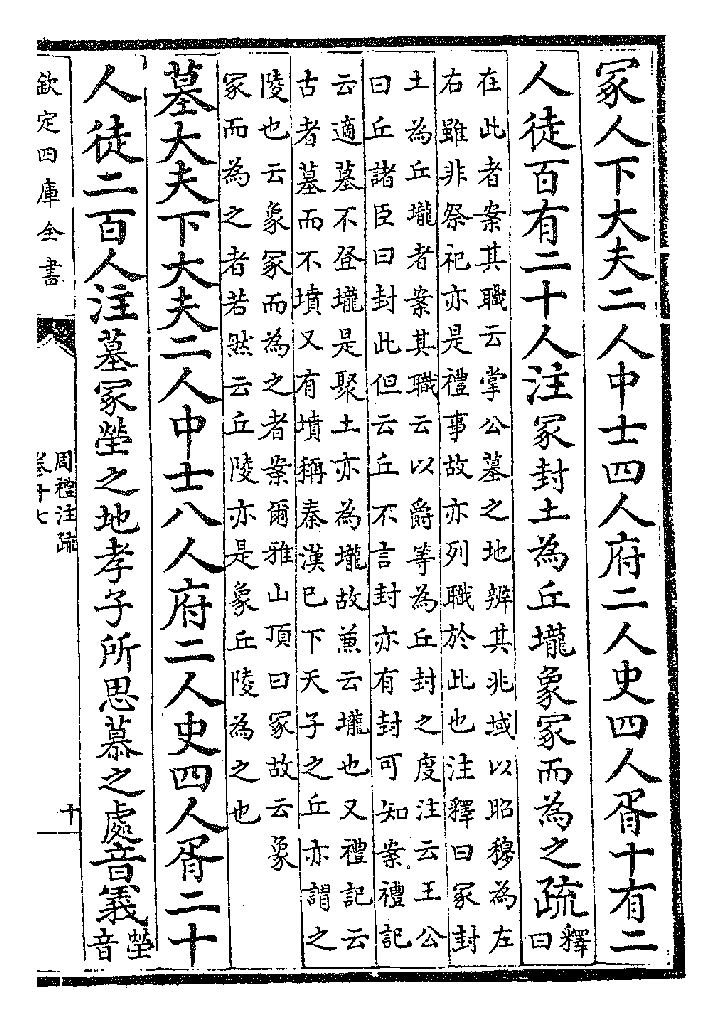 冢人下大夫二人中士四人府二人史四人胥十有二
人徒百有二十人注冢封土為丘壠象冢而為之疏釋
曰
在此者案其職云掌公墓之地辨其兆域以昭穆為左
右雖非祭祀亦是禮事故亦列職於此也注釋曰冢封
土為丘壠者案其職云以爵等為丘封之度注云王公
曰丘諸臣曰封此但云丘不言封亦有封可知案禮記
云適墓不登壠是聚土亦為壠故兼云壠也又禮記云
古者墓而不墳又有墳稱秦漢已下天子之丘亦謂之
陵也云象冢而為之者案爾雅山頂曰冢故云象
冢而為之者若然云丘陵亦是象丘陵為之也
墓大夫下大夫二人中士八人府二人史四人胥二十
人徒二百人注墓冢塋之地孝子所思慕之處音義塋
音
欽定四庫全書
周禮注疏
卷十七
十